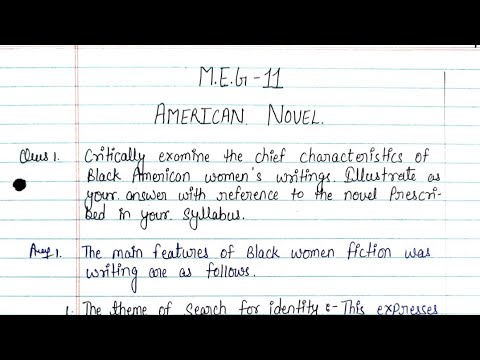 M.E.G-11
AMERICAN. NOVEL.
Ques 1. Critically examine the chief characteristics of
Black American women's writings. Illustrate as
your answer with reference to the novel Prescri-
bed in your syllabus.
Ans 1. The main features of Black women fiction was
writing are as follows.
1. The theme of Search for identity :- This expresses